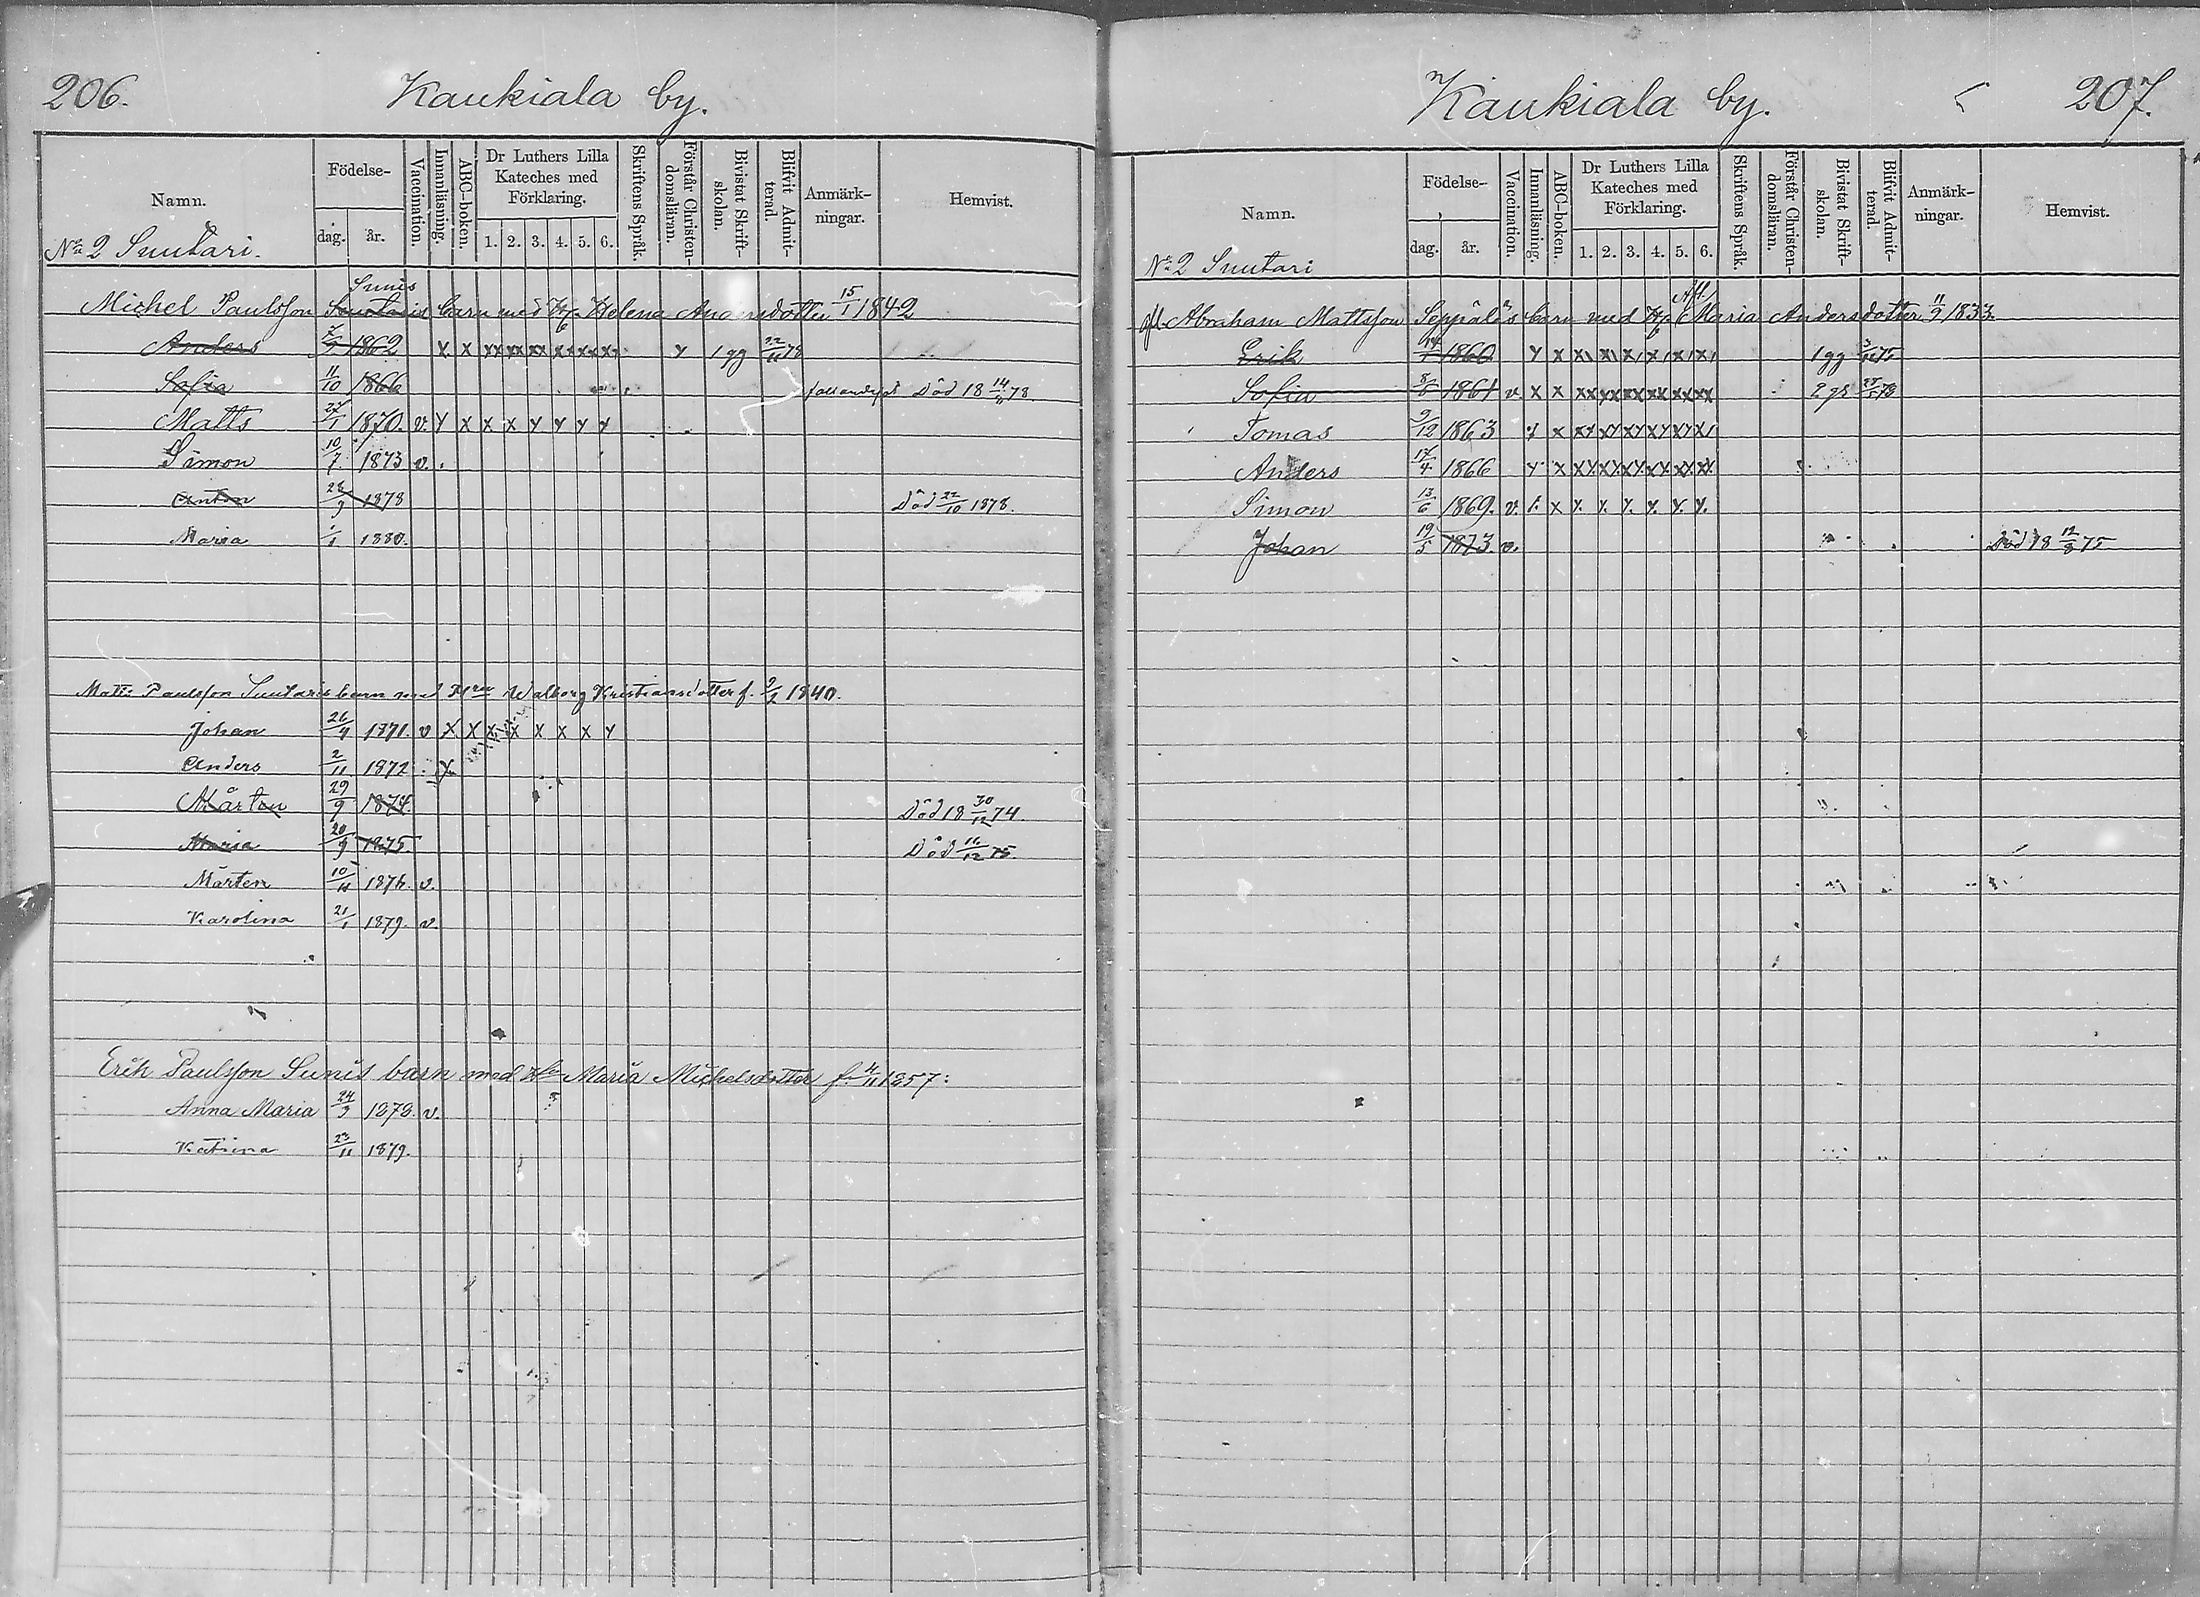 206.
Kaukiala by.
Namn.
Födelse-
dag.
år.
Vaccination.
Innanläsning.
ABC-boken.
Dr Luthers Lilla Kateches med Förklaring.
1. 2. 3. 4. 5. 6.
Skriftens Språk.
Förstår Christendomsläran.
Bivistat Skriftskolan.
Blifvit Admitterad.
Anmärkningar.
Hemvist.
No 2 Suutari.
Sunis
Michel Paulsson Suutaris barn med H. Helena Andersdotter 15/1 1842
Anders 1862 x x xx xx xx xx xx xx x 1 gg 22/11 78
Sofia 11/10 1866 fallandesot Död 18 14/ 78.
Matts 27/1 1870. v. x x x x x x x x
Simon 10/7 1873 v.
Anton 28/9 1878 Död 22/10 1878.
Maria 1/1 1880.
Matts Paulsson Suutaris barn med H Walborg Kristiansdotter f. 9/2 1840.
Johan 26/9 1871. v x x x x x x x x
Anders 2/11 1872. x
Mårten 29/9 1874. Död 18 30/12 74.
Maria 20/9 1875. Död 16/12 75.
Mårten 10/11 1876. v.
Karolina 21/1 1879. v.
Erik Paulsson Sunis barn med H Maria Michelsdotter f. 4/11 1857:
Anna Maria 24/3 1878. v.
Katrina 23/11 1879.
Kaukiala by.
207.
Namn.
Födelse-
dag.
år.
Vaccination.
Innanläsning.
ABC-boken.
Dr Luthers Lilla Kateches med Förklaring.
1. 2. 3. 4. 5. 6.
Skriftens Språk.
Förstår Christendomsläran.
Bivistat Skriftskolan.
Blifvit Admitterad.
Anmärkningar.
Hemvist.
No 2 Suutari
Afl.
Abraham Mattsson Seppäläs barn med H. Maria Andersdotter 11/9 1833.
Erik 1860 x x x x x x x x 1 gg
Sofia 1861 v. x x xx xx xx xx xx xx 2 gr
Tomas 9/12 1863 x x xx xx xx xx xx x
Anders 17/4 1866 x x xx xx xx xx xx xx
Simon 13/6 1869. v. x. x x. x. x. x. x. x.
Johan 19/5 1873. v. Död 18 12/8 75